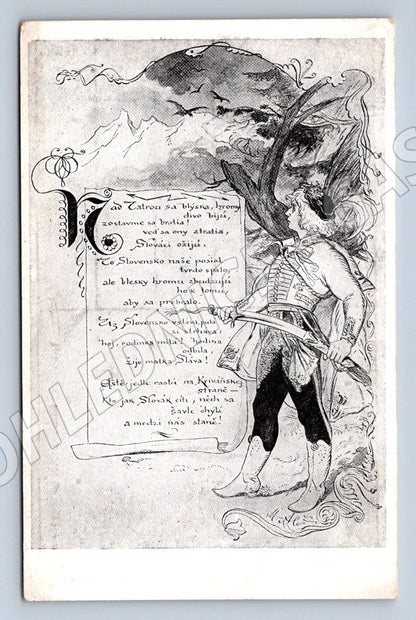 Nad Tatrou sa blýska, hromy
divo bijú,
zostavme sa bratia!
veď sa ony ztratia,
Slováci ožijú.
To Slovensko naše posiaľ
tvrdo spalo,
ale blesky hromu zbudzujú
ho k tomu,
aby sa prebralo.
Už Slovensko vstáva, putá
si strháva:
hoj, rodinka milá! hodina
odbila,
žije matka Sláva!
Ešte jedle rastú na Kriváňskej
strane –
Kto jak Slovák cíti, nech sa
šavle chytí
a medzi nás stane!